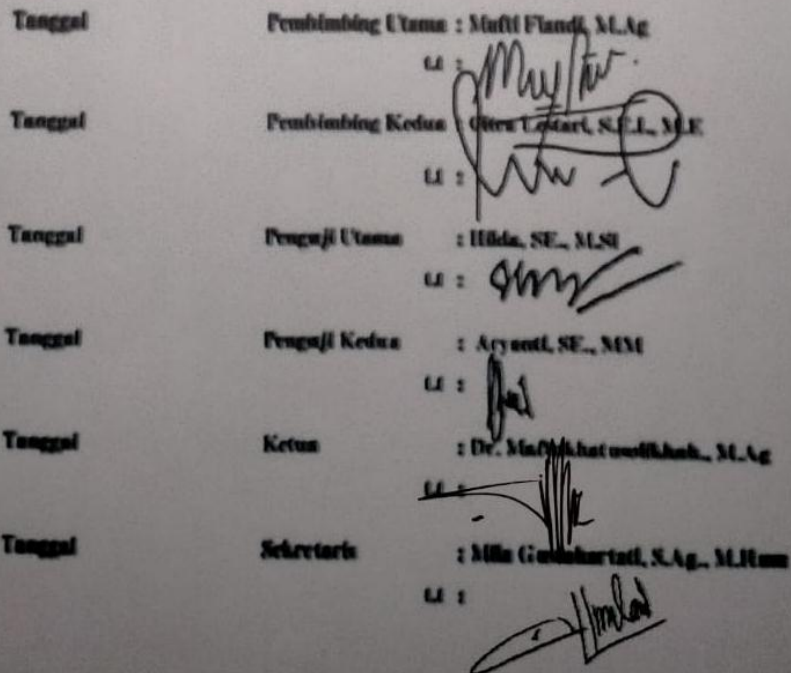 Tanggal Pembimbing Utama : Mufti Fiandi, M.Ag
t.t :
Tanggal Pembimbing Kedua : Citra Lestari, S.E.I., M.E
t.t :
Tanggal Penguji Utama : Hilda, SE., M.Si
t.t :
Tanggal Penguji Kedua : Aryanti, SE., MM
t.t :
Tanggal Ketua : Dr. M.Ag
t.t :
Tanggal Sekretaris : Mila S.Ag., M.Hum
t.t :